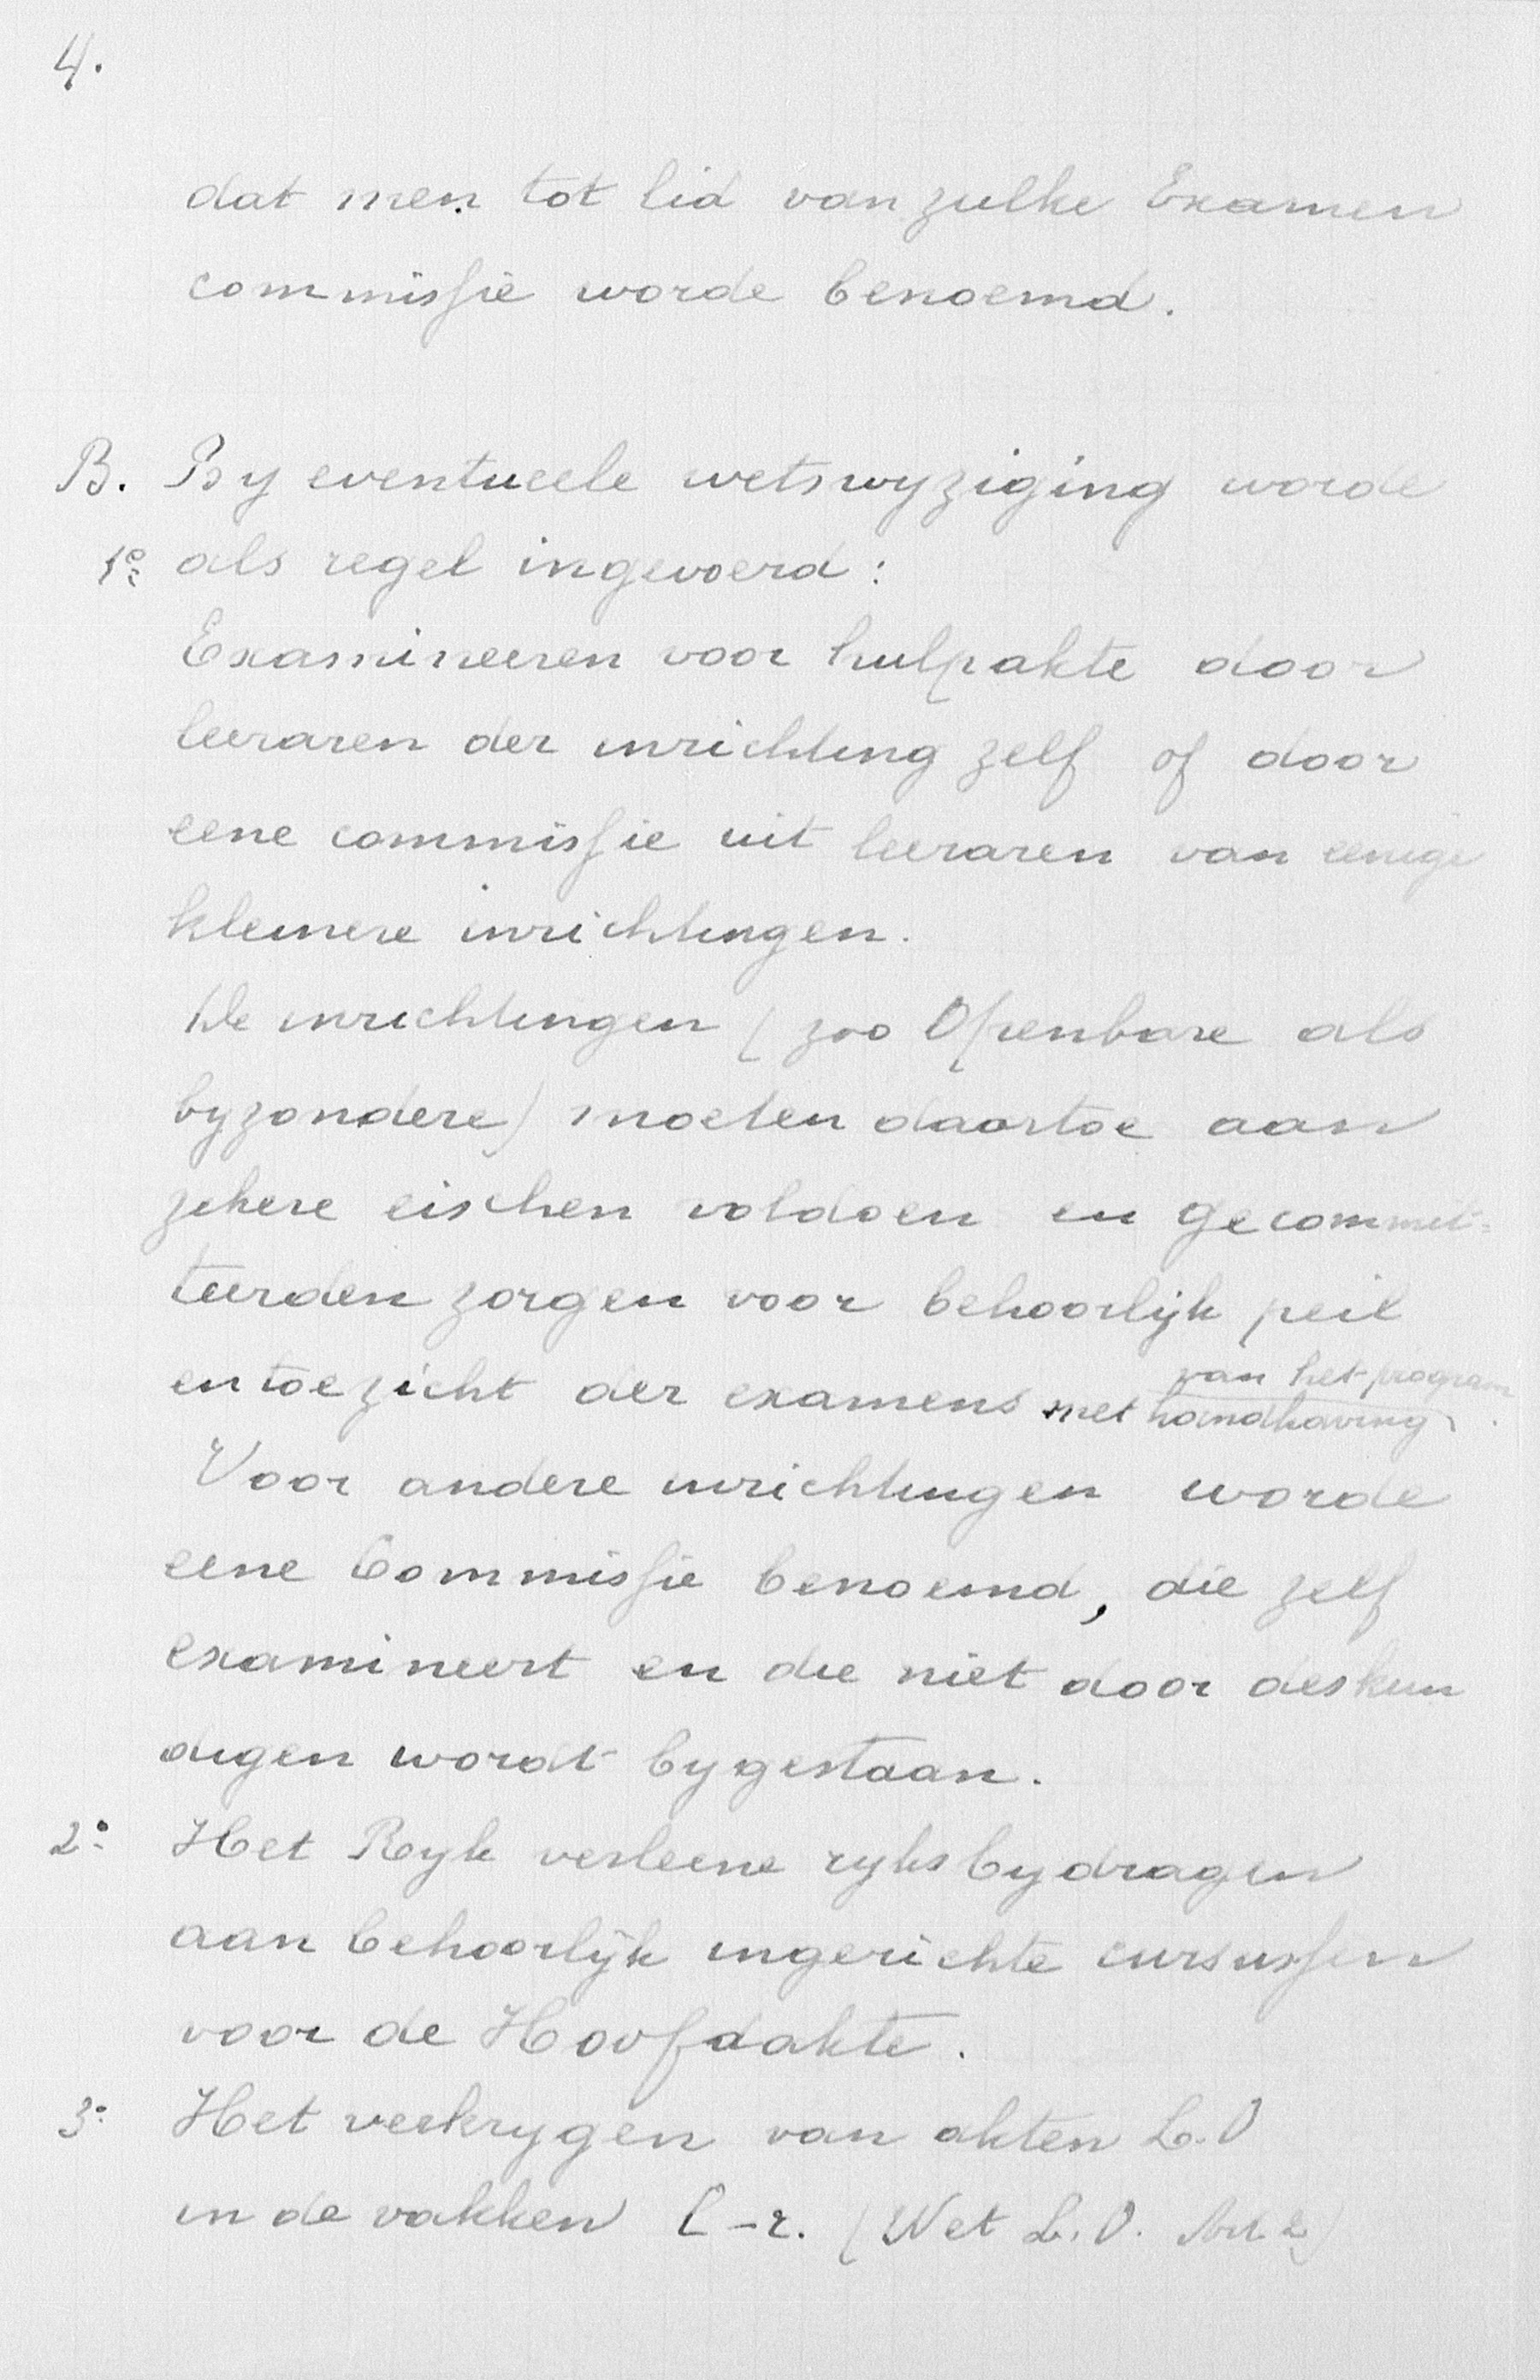 4.
dat men tot lid van zulke Examen
commissie worde benoemd.
B. By eventueele wetswyziging worde
1º als regel ingevoerd:
Examineeren voor hulpakte door
leeraren der inrichting zelf of door
eene commissie uit leeraren van eenige
kleinere inrichtingen.
De inrichtingen (zoo Openbare als
byzondere) moeten daartoe aan
zekere eischen voldoen en gecommit=
teerden zorgen voor behoorlijk peil
en toezicht der examens met handhaving
van het program.
Voor andere inrichtingen worde
eene Commissie benoemd, die zelf
examineert en die niet door deskun
digen wordt bygestaan.
2º Het Ryk verleene ryksbydragen
aan behoorlijk ingerichte cursussen
voor de Hoofdakte.
3º Het verkrygen van akten L.O
in de vakken l-r. (Wet L.O. Art 2)